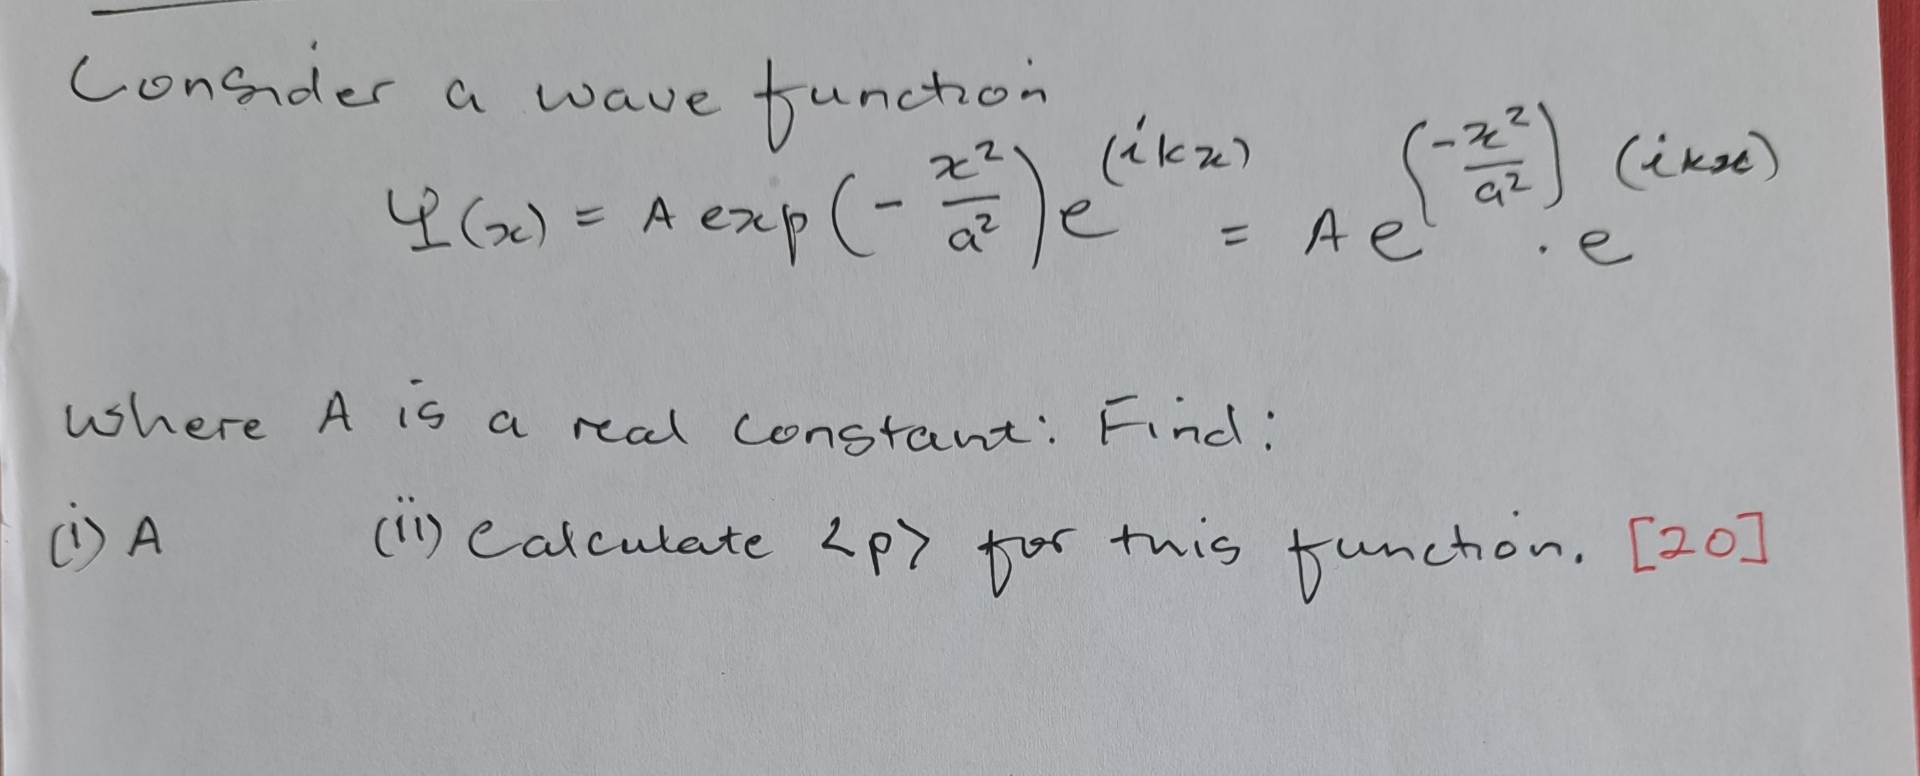 Consider a wave function
Ψ(x) = A exp(-x²/a²)e^(ikx) = Ae^(-x²/a²) . e^(ikx)
where A is a real constant: Find:
(i) A (ii) Calculate <p> for this function. [20]